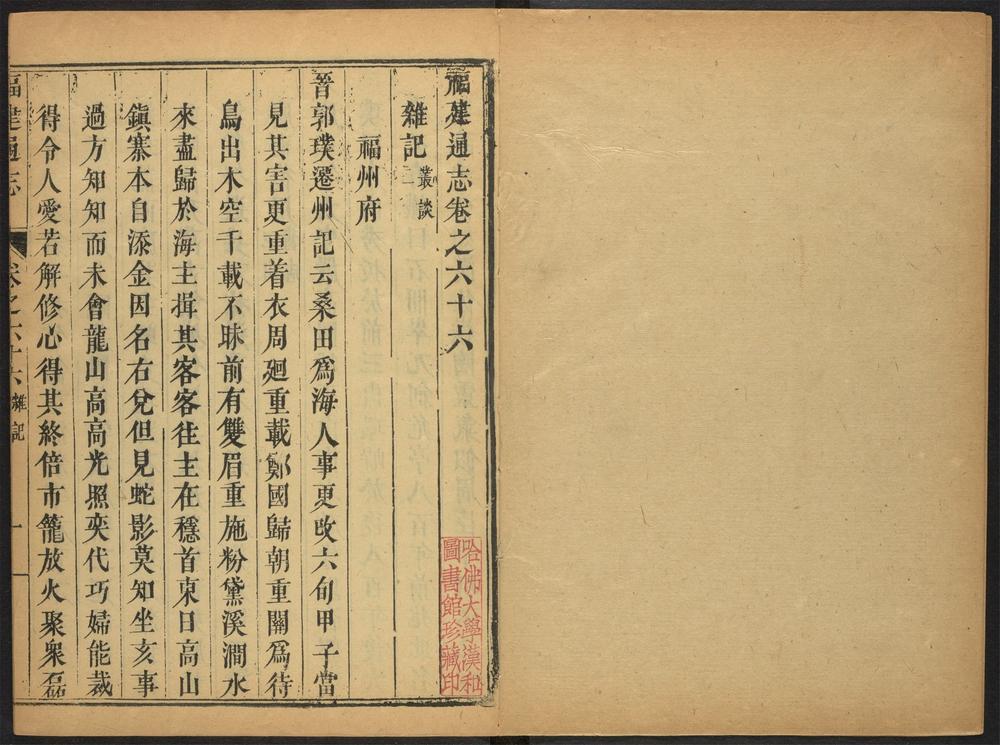 福建通志卷之六十六
雜記
叢談
一
福州府
晉郭璞遷州記云桑田爲海人事更改六旬甲子當
見其害更重着衣周廻重載鄭國歸朝重關爲待
鳥出木空千載不昧前有雙眉重施粉黛溪澗水
來盡歸於海主揖其客客徃主在穩首東日高山
鎮寨本自添金因名右兌但見蛇影莫知坐亥事
過方知知而未會龍山高高光照奕代巧婦能裁
得令人愛若解修心得其終倍市籠放火聚衆磊
福建通志
卷之六十六
雜記
一
哈佛大學漢和
圖書館珍藏印